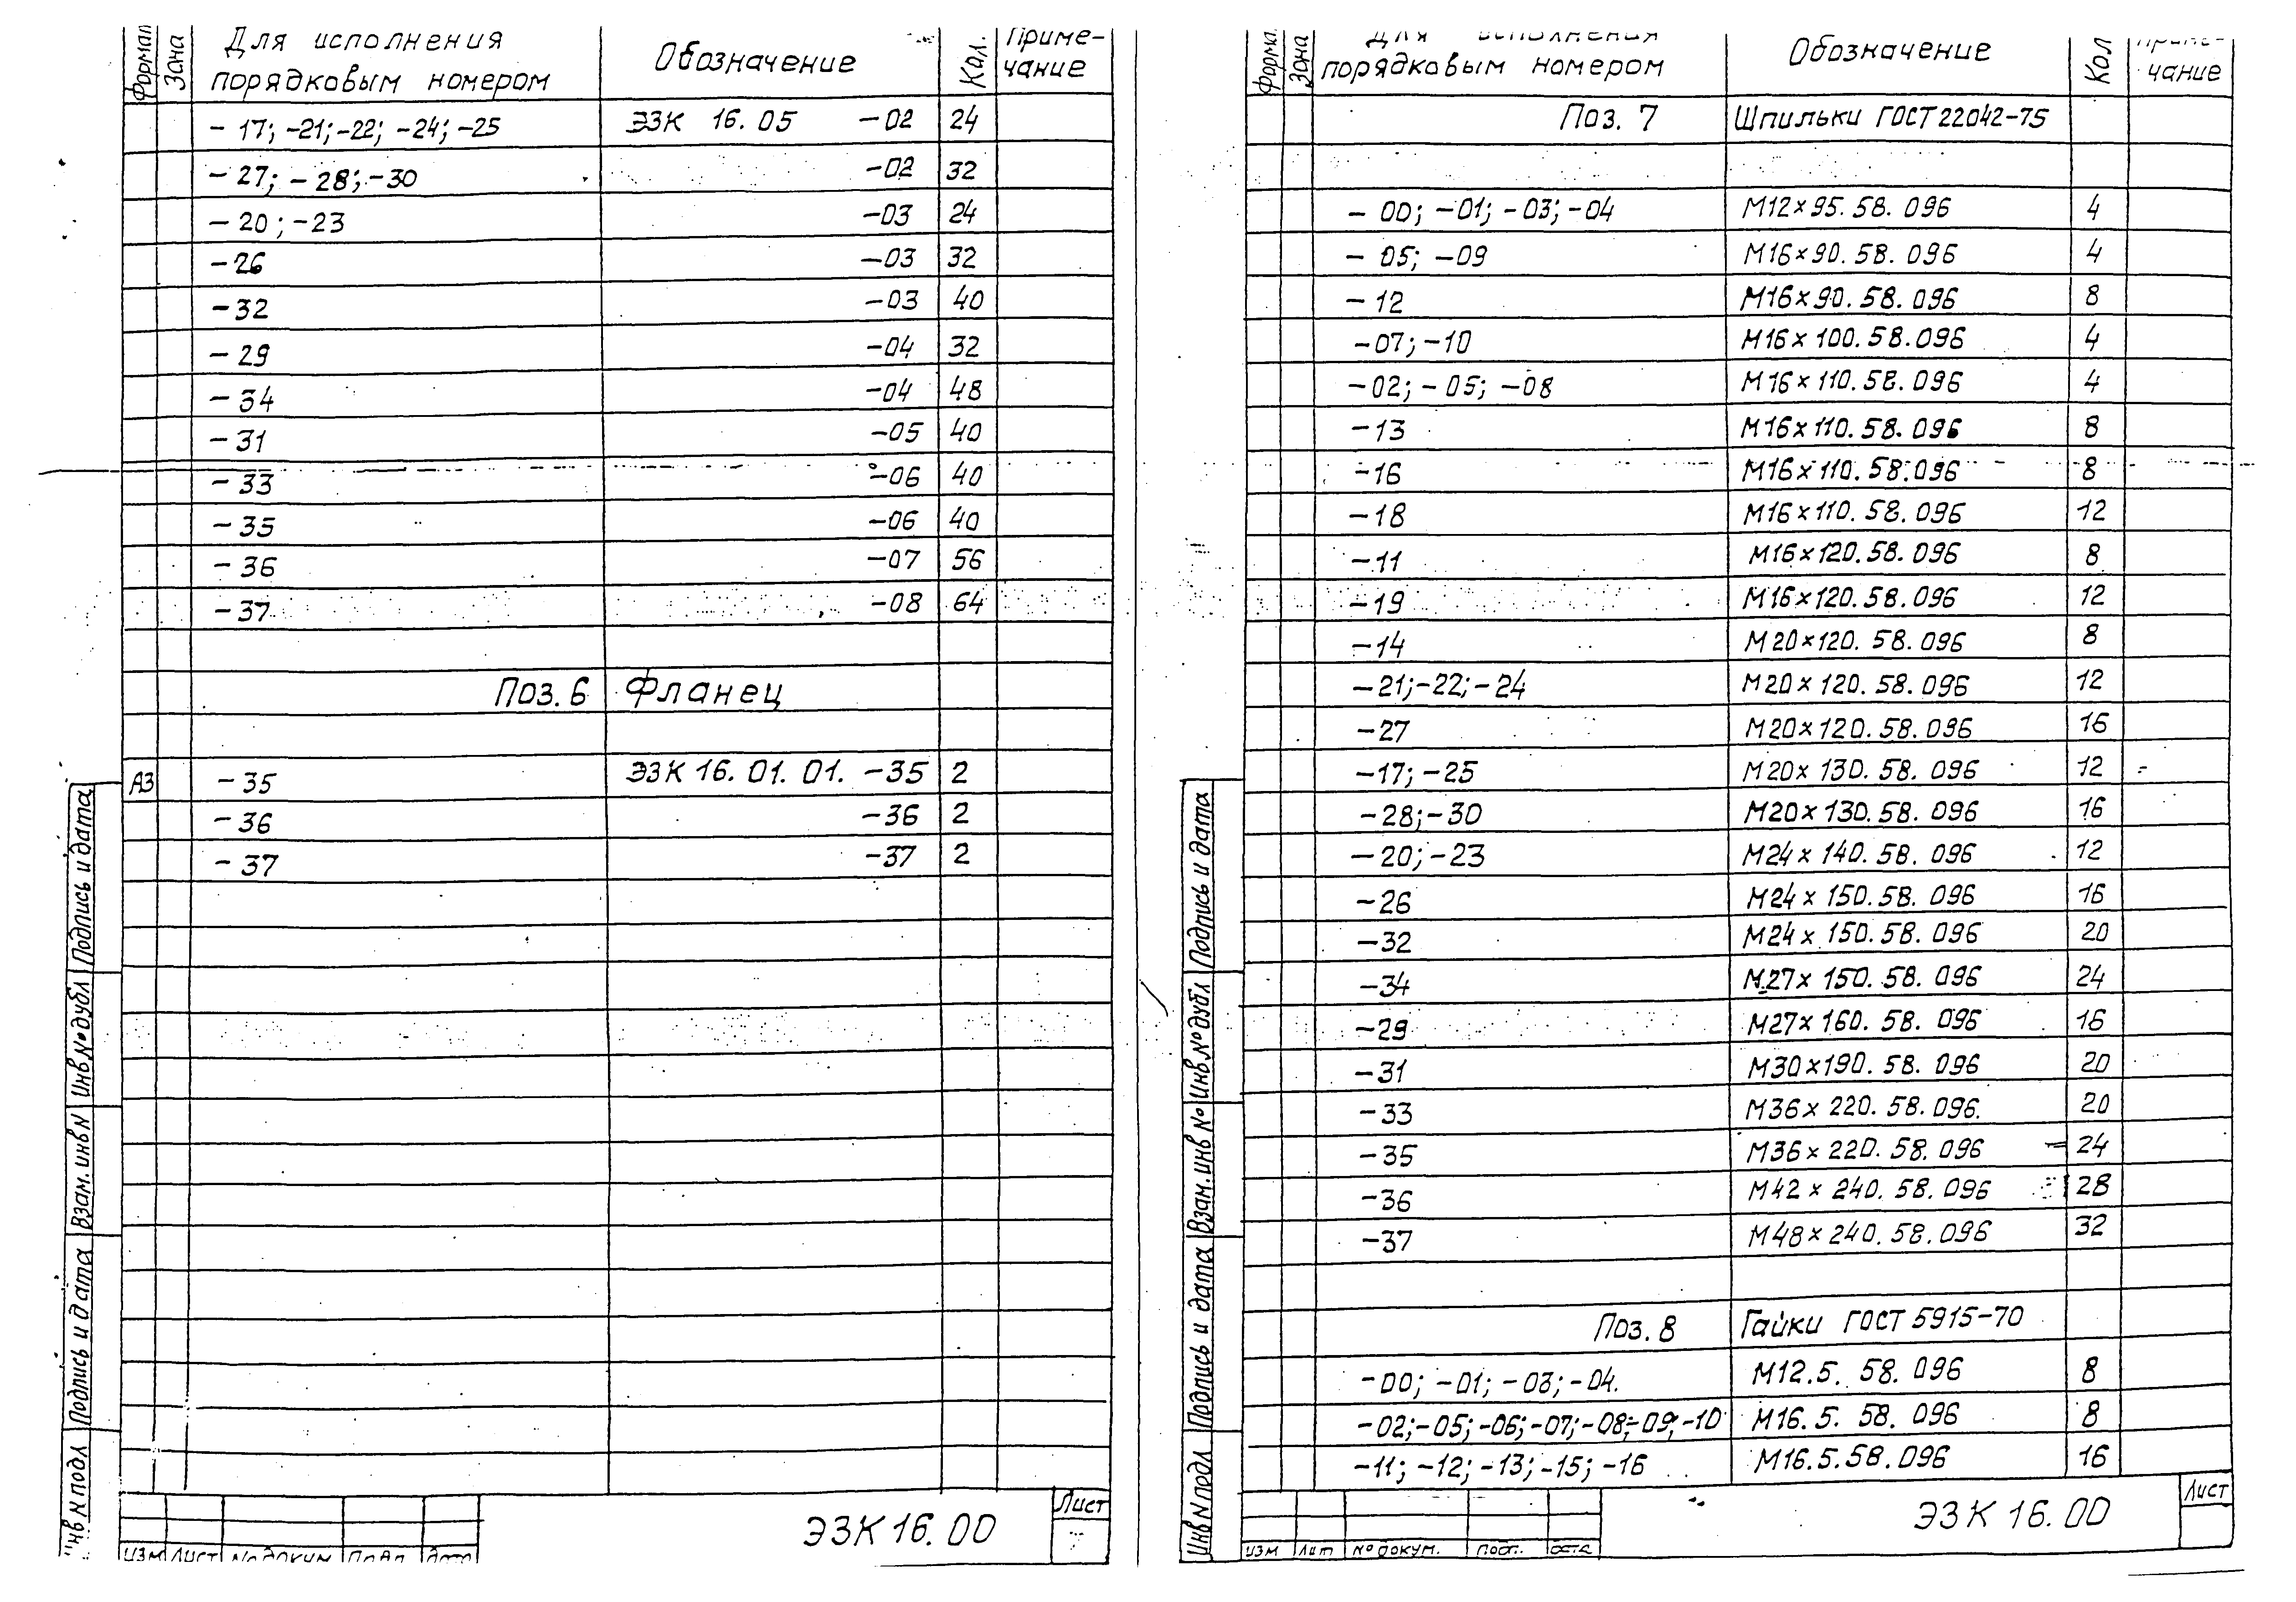 Формат Зона Для исполнения Обозначение Кол. Приме-
порядковым номером чание
- 17; -21; -22; -24; -25 ЭЗК 16.05 -02 24
- 27; - 28; -30 -02 32
- 20; -23 -03 24
-26 -03 32
-32 -03 40
- 29 -04 32
- 34 -04 48
- 31 -05 40
- 33 -06 40
- 35 -06 40
- 36 -07 56
- 37 -08 64
Поз. 6 Фланец
А3 - 35 ЭЗК 16. 01. 01. -35 2
- 36 -36 2
- 37 -37 2
Подпись и дата
Инв № дубл
Взам. инв N
Подпись и дата
Инв N подл
ЭЗК 16.00
Лист
7
изм Лист № докум Подп дата
Форма Зона Для исполнения Обозначение Кол Приме-
порядковым номером чание
Поз. 7 Шпильки ГОСТ 22042-75
- 00; -01; -03; -04 М12×95. 58. 096 4
- 05; -09 М16×90. 58. 096 4
- 12 М16×90. 58. 096 8
-07; -10 М16×100. 58. 096 4
-02; -05; -08 М16×110. 58. 096 4
-13 М16×110. 58. 096 8
-16 М16×110. 58. 096 8
-18 М16×110. 58. 096 12
-11 М16×120. 58. 096 8
-19 М16×120. 58. 096 12
-14 М20×120. 58. 096 8
-21; -22; -24 М20×120. 58. 096 12
-27 М20×120. 58. 096 16
-17; -25 М20×130. 58. 096 12
-28; -30 М20×130. 58. 096 16
-20; -23 М24×140. 58. 096 12
-26 М24×150. 58. 096 16
-32 М24×150. 58. 096 20
-34 М27×150. 58. 096 24
-29 М27×160. 58. 096 16
-31 М30×190. 58. 096 20
-33 М36×220. 58. 096. 20
-35 М36×220. 58. 096 24
-36 М42×240. 58. 096 28
-37 М48×240. 58. 096 32
Поз. 8 Гайки ГОСТ 5915-70
-00; -01; -03; -04. М12.5. 58. 096 8
-02; -05; -06; -07; -08; -09; -10 М16. 5. 58. 096 8
-11; -12; -13; -15; -16 М16.5.58.096 16
Подпись и дата
Инв № дубл
Взам. инв №
Подпись и дата
Инв N подл
ЭЗК 16.00
Лист
изм Лит № докум. подп. дата